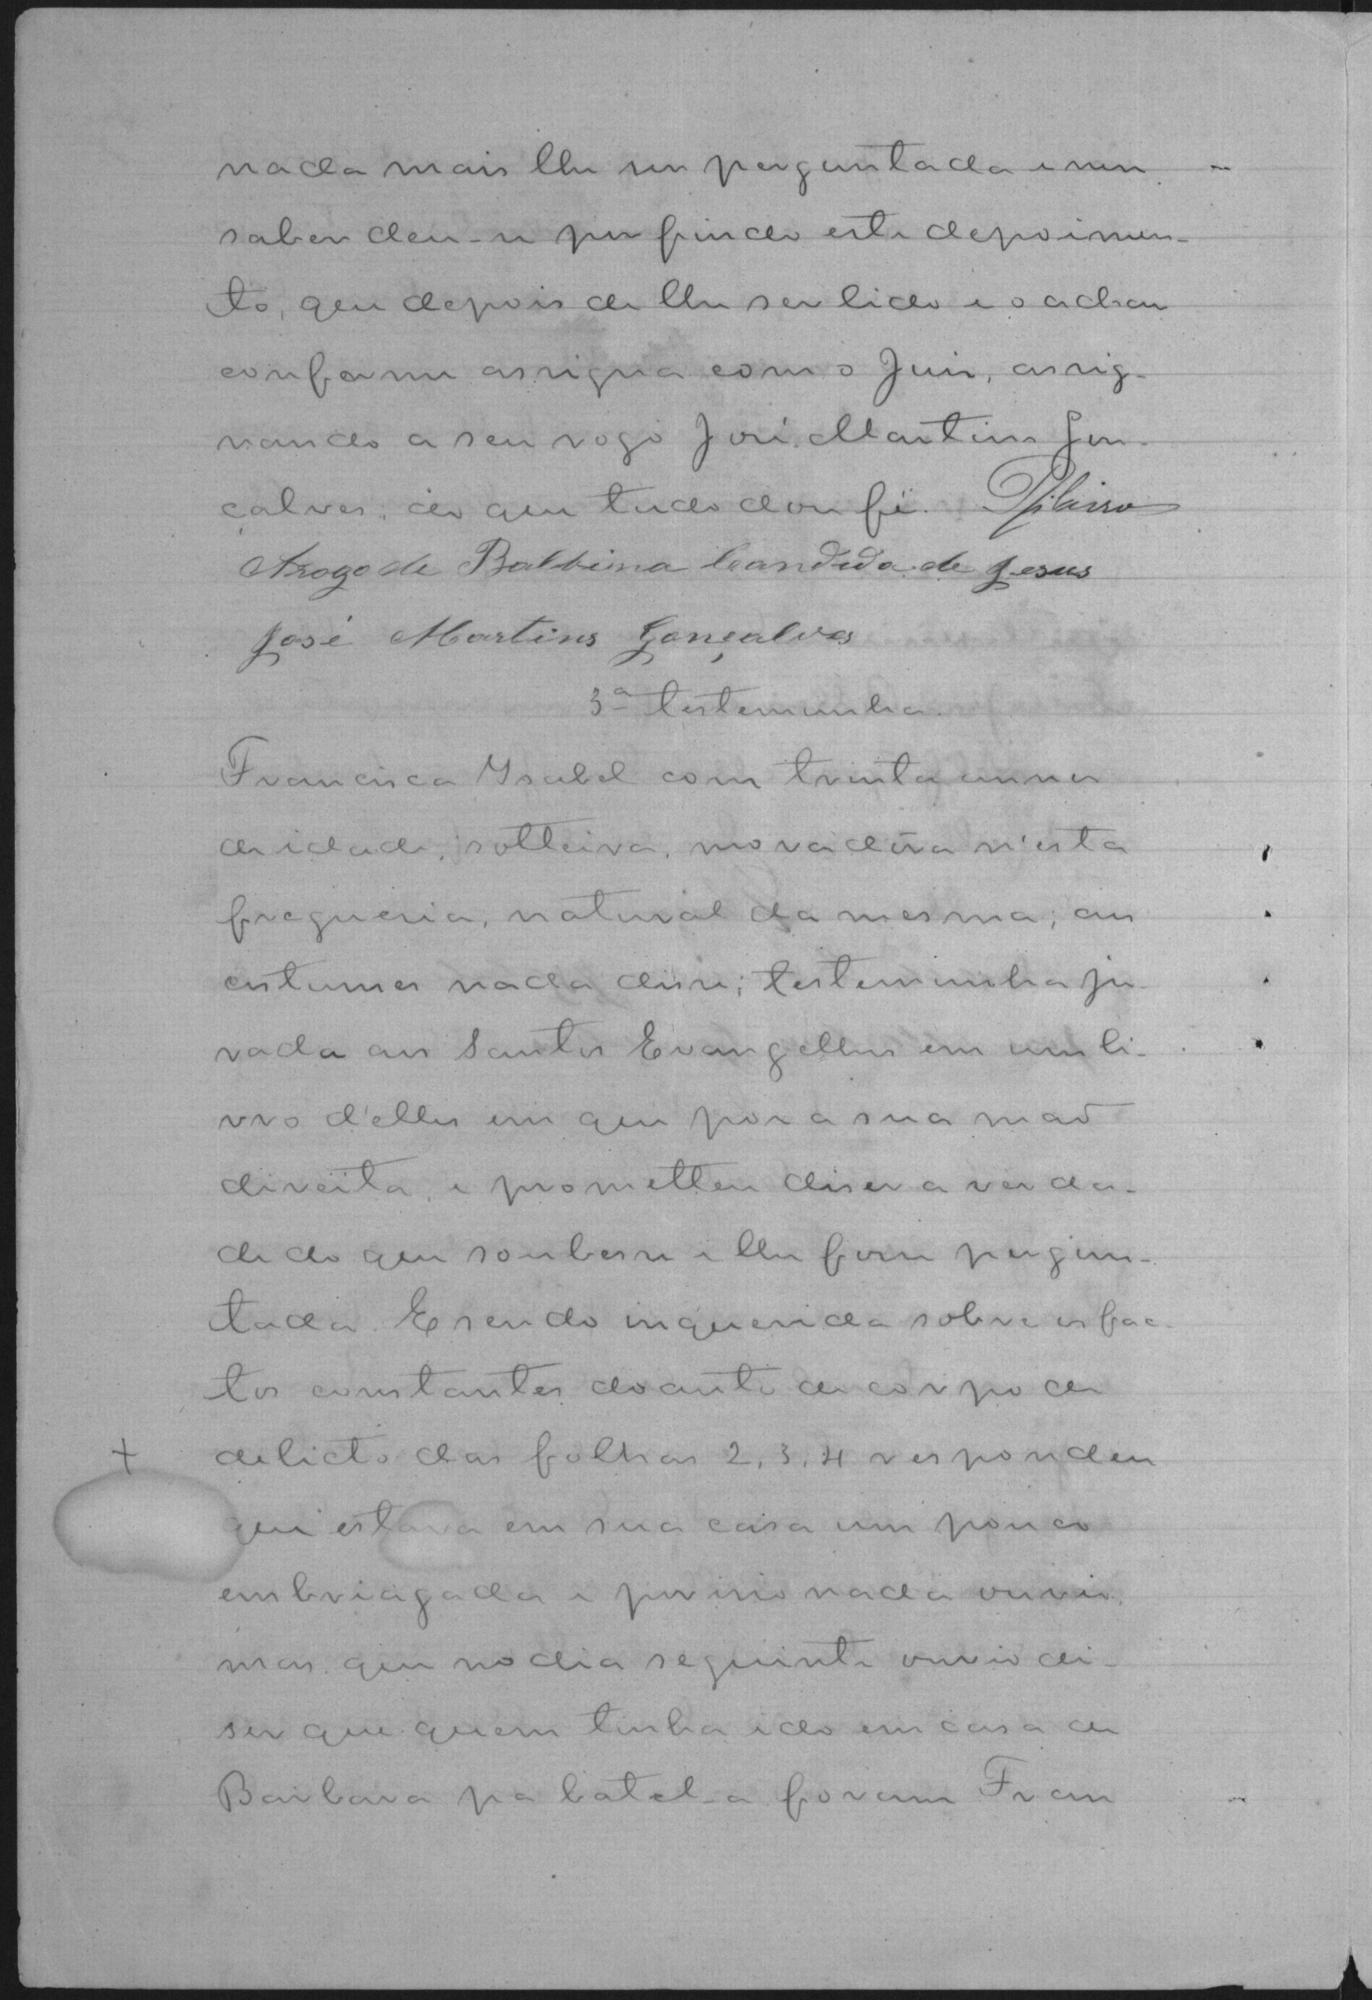 nada mais lhe ser perguntada e nem
saber deu-se por findo este depoimen-
to, que depois de lhe ser lido e o achar
conforme assigna com o Juis, assig-
nando a seu rogo José Martins Gon-
çalves, do que tudo dou fé.
Arogo de Balbina Candida de Jesus
José Martins Gonçalves
3ª testemunha.
Francisca Ysabel com trinta annos
de idade, solteira, moradora n'esta
freguesia, natural da mesma; aos
custumes nada disse; testemunha ju-
rada aos Santos Evangelhos em um li-
vro d'elles em que pos a sua mão
direita, e prometteu diser a verda-
de do que soubesse e lhe fosse pergun-
tada. E sendo inquerida sobre os fac-
tos constantes do auto de corpo de
delicto das folhas 2, 3, 4 respondeu
que estava em sua casa um pouco
embriagada e por isso nada ouvio
mas que no dia seguinte ouvio di-
ser que quem tinha ido em casa de
Barbara pa batel-a foram Fran